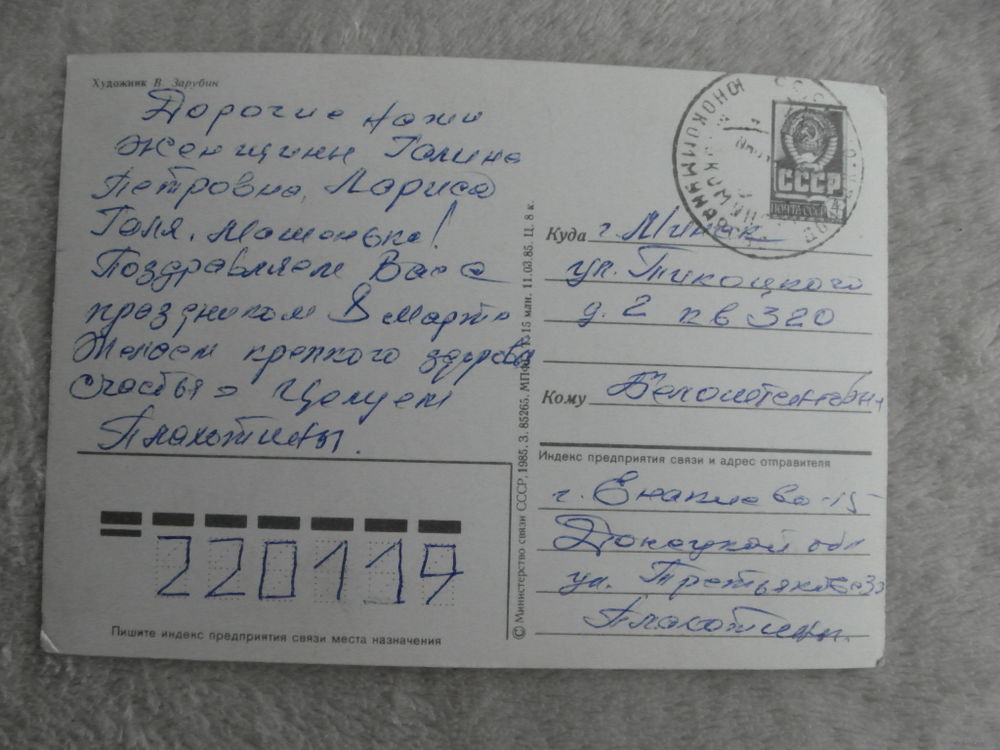 Художник В. Зарубин
Дорогие наши
женщины Галина
Петровна, Лариса
Галя, Машенька!
Поздравляем Вас с
праздником 8 марта
Желаем крепкого здоровья
счастья Целуем
Плахотины.
220119
Пишите индекс предприятия связи места назначения
© Министерство связи СССР, 1985. З. 85265. 15 млн. 11.03.85. Ц. 8 к.
СССР
ПОЧТА СССР
Куда г. Минск
ул. Тикоцкого
д. 2 кв 320
Кому
Индекс предприятия связи и адрес отправителя
г. Енакиево-15
Донецкой обл
ул. Третьякова
Плахотины.